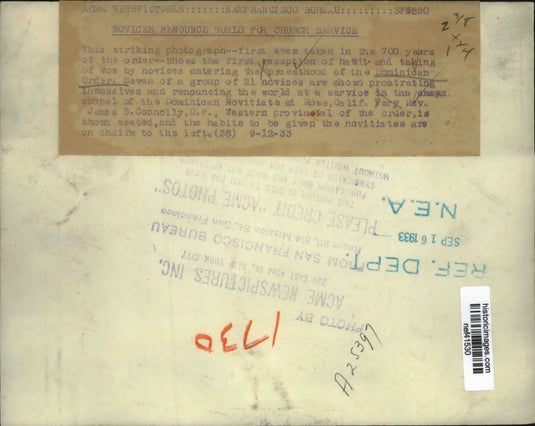 ACME NEWSPICTURES::::::SANFRANCISCO BUREAU:::::::::SF3850
NOVICES RENOUNCE WORLD FOR CHURCH SERVICE
This striking photograph--first ever taken in the 700 years
of the order--shows the first reception of habit and taking
of vow by novices entering the priesthood of the Dominican
Order. Seven of a group of 21 novices are shown prostrating
themselves and renouncing the world at a service in the
chapel of the Dominican Novitiate at Ross, Calif. Very Rev.
James B. Connolly, O.P., Western provincial of the order, is
shown seated, and the habits to be given the novitiates are
on chairs to the left. (38) 9-12-33
2 7/8
x
1 1/4
PHOTO BY
ACME NEWSPICTURES INC.
220 EAST 42d St., NEW YORK CITY
FROM SAN FRANCISCO BUREAU
Room 211, 814 Mission St., San Francisco
PLEASE CREDIT "ACME PHOTOS"
THIS PICTURE IS SOLD TO YOU FOR YOUR
PUBLICATION ONLY AND MUST NOT BE
SYNDICATED OR USED FOR
WITHOUT WRITTEN
REF. DEPT.
SEP 16 1933
N.E.A.
1730
A25397
historicimages.com
nef41530